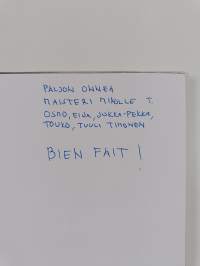 PALJON ONNEA
MAISTERI MIKOLLE T.
OSMO, EIJA, JUKKA-PEKKA,
TOUKO, TUULI TIMONEN
BIEN FAIT !